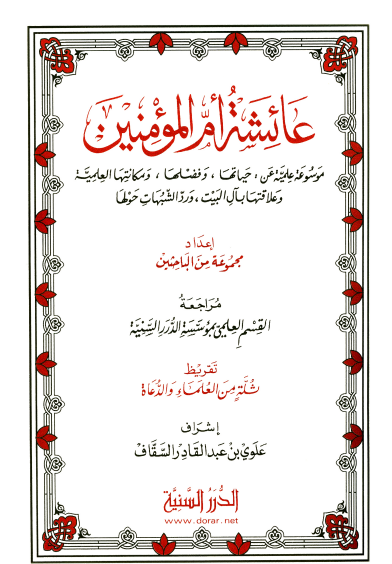 عَائِشَةُ أُمُّ المُؤْمِنِينَ
مَوْسُوعَة عِلميَّة عَن: حَيَاتهَا، وَفَضْلهَا، وَمَكَانتهَا العِلمِيَّة
وَعَلاقتهَا بآلِ البَيْت، وَرَدّ الشُّبُهَاتِ حَوْلهَا
إعدَاد
مجمُوعَة مِنَ البَاحِثين
مُرَاجَعَة
القِسْمِ العِلميّ بمُؤسَّسَةِ الدُّرَر السَّنِيَّة
تَقريظ
ثُلَّةٍ مِنَ العُلَمَاءِ وَالدُّعَاة
إشرَاف
عَلَوي بْن عَبد القَادِر السَّقَّاف
الدُّرَرُ السَّنيَّة
www.dorar.net